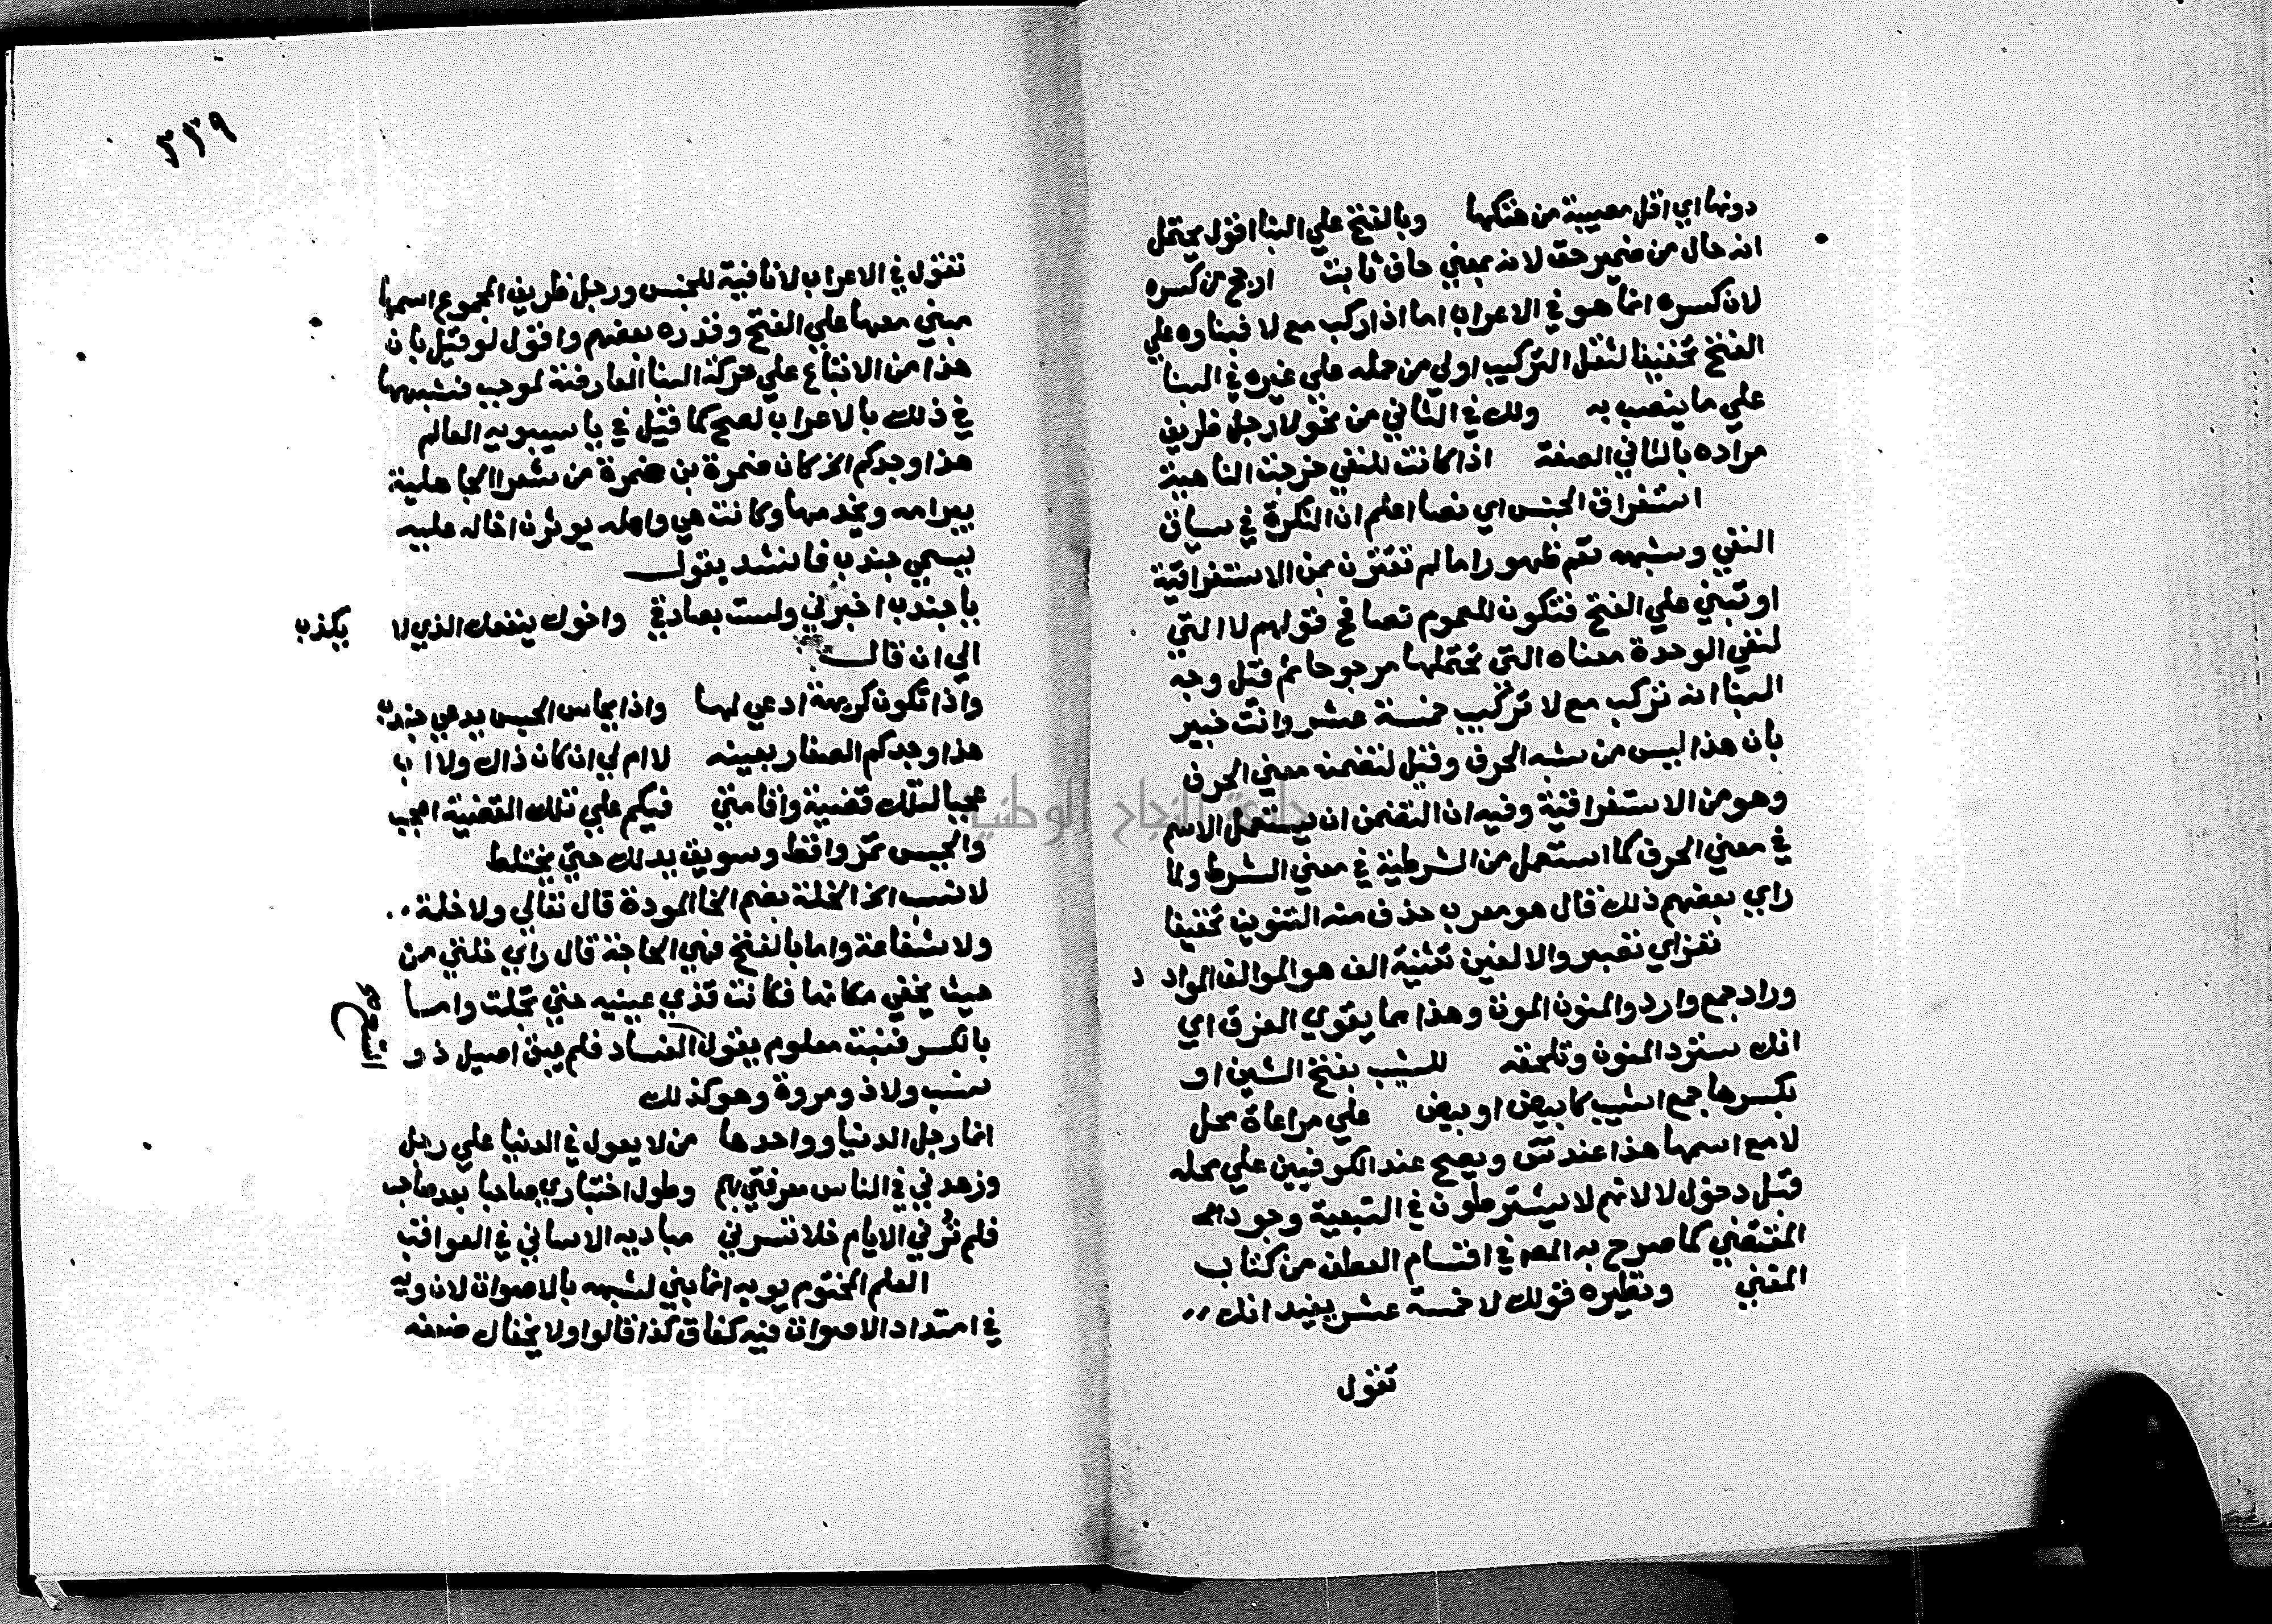 دونها اي اقل مصيبة من هتكها وبالفتح علي البنا اقول يحتمل
انه حال من ضمير حق لانه بمعني حاق ثابت ارجح من كسره
لان كسره انما هو في الاعراب اما اذا ركب مع لا فبناوه علي
الفتح تخفيفا لثقل التركيب اولي من حمله علي غيره في البنا
علي ما ينصب به ولك في الثاني من نحو لا رجل ظريف
مراده بالثاني الصفة اذا كانت للنفي خرجت الناهية
استغراق الجنس اي نصا اعلم ان النكرة في سياق
النفي وشبهه تعم ظهورا ما لم تقترن بمن الاستغراقية
او تبني علي الفتح فتكون للعموم نصا فمع قولهم لا التي
لنفي الوحدة معناه التي تحتملها مرجوحا ثم قتل وجه
البنا انه تركب مع لا تركيب خمسة عشر وانت خبير
بان هذا ليس من شبه الحرف وقيل لتضمنه معني الحرف
وهو من الاستغراقية وفيه ان التضمن ان يستعمل الاسم
في معني الحرف كما استعمل من الشرطية في معني الشرط ولما
راي بعضهم ذلك قال هو معرب حذف منه التنوين تخفيفا
تعز اي تصبر والالفين تثنية الف هو الموالف المواد د
وراد جمع وارد والمنون الموت وهذا مما يقوي العزق اي
انك سترد المنون وتلحقه للشيب بفتح الشين او
بكسرها جمع اشيب كابيض او بيض علي مراعاة محل
لا مع اسمها هذا عند س ويصح عند الكوفيين علي محله
قبل دخول لا لانهم لا يشترطون في التبعية وجود
المقتضي كما صرح به المص في اقسام العطف من كتاب
المغني ونظيره قولك لا خمسة عشر يفيد انك
تقول
٣٣٩
تقول في الاعراب لا نافية للجنس ورجل ظريف المجموع اسمها
مبني معها علي الفتح وقدره بعضهم واقول لو قيل بان
هذا من الاتباع علي حركة البنا العارضة لموجب فتشبهها
في ذلك بالاعراب لصح كما قيل في يا سيبويه العالم
هذا وجدكم الخ كان ضمرة بن ضمرة من شعرا الجاهلية
يبر امه ويخدمها وكانت هي واهله يوثرن اخا له عليه
يسمي جندب فانشد يقول
يا جندب اخبرني ولست بصادقي واخوك ينفعك الذي لا يكذب
الي ان قال
واذا تكون كريهة ادعي لها واذا يحاس الحيس يدعي جندب
هذا وجدكم الصغار بعينه لا ام لي ان كان ذاك ولا اب
عجبا لتلك قضية واقامتي فيكم علي تلك القضية اعجب
والحيس تمر واقط وسويق يدلك حتي يختلط
لا نسب الخ الخلة بضم الخا المودة قال تعالي ولا خلة
ولا شفاعة واما بالفتح فهي الحاجة قال راي خلتي من
حيث يخفي مكانها فكانت قذي عينيه حتي تجلت واما
بالكسر فنبت معلوم يقول الفساد فلم يبق اصيل ذو
نسب ولا ذو مروة وهو كذلك
انما رجل الدنيا وواحدها من لا يعول في الدنيا علي رجل
وزهدني في الناس معرفتي بهم وطول اختباري صاحبا بعد صاحب
فلم ترني الايام خلا تسرني مباديه الا ساني في العواقب
العلم المختوم بويه انما بني لشبهه بالاصوات لان ويه
في امتداد الاصوات فيه كغاق كذا قالوا ولا يخفاك ضعفه